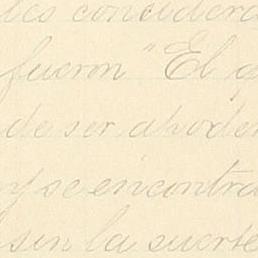 les considera
fueron "El q
de ser apoder
y se encontra
sin la suerte